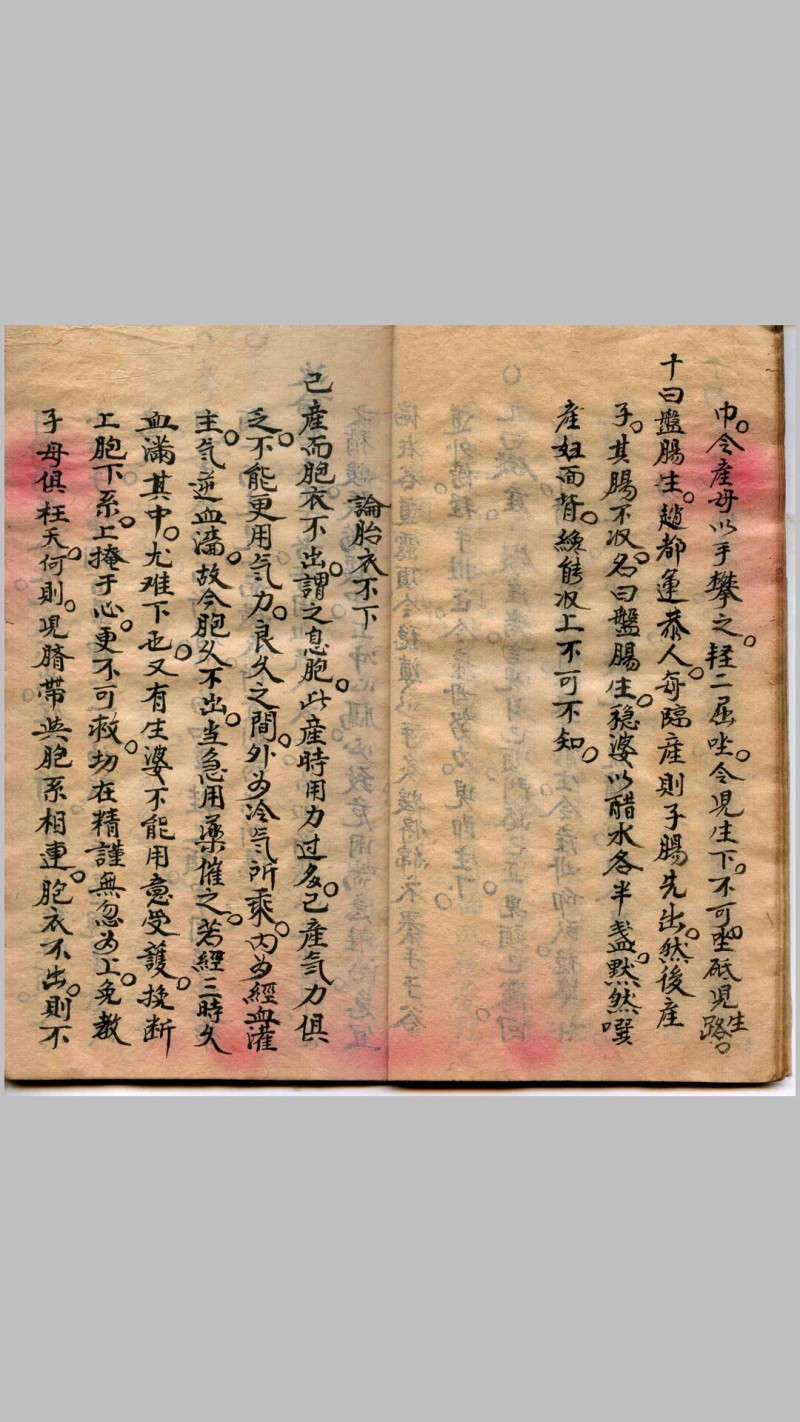 巾。令產母以手攀之。輕二屈坐。令児生下。不可坐砥児生路。
十曰盤腸生。趙都運恭人。每臨產則子腸先出。然後產
子。其腸不収。名曰盤腸生。穏婆以醋水各半盞。黙然噀
產妇面背。総能収上不可不知。
論胎衣不下
已產而胞衣不出。謂之息胞。此產時用力过多。已產気力俱
乏。不能更用気力。良久之間。外为冷気所乘。内为經血灌
主。気逆血濇。故令胞久不出。当急用藥催之。若經三時久
血滿其中。尤难下也。又有生婆不能用意受護。挽断
工胞下系。上掩于心。更不可救。切在精謹無忽为上。免教
子母俱枉夭。何則。児臍帶與胞系相連。胞衣不出。則不